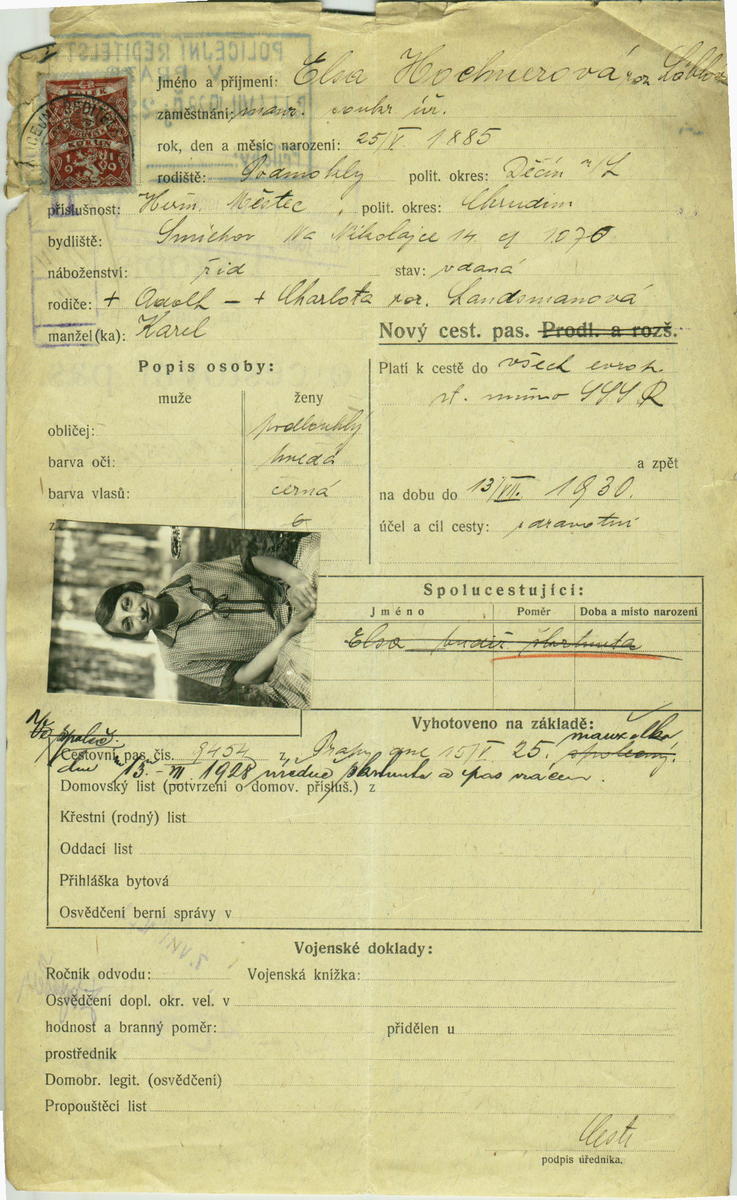 POLICEJNÍ ŘEDITELST
V PRAZE
KORUN
1919
Jméno a příjmení: Elsa Hochnerová roz.
zaměstnání: manž. soukr. úř.
rok, den a měsíc narození: 25/V 1885
rodiště: Podmokly polit. okres: Děčín n/L
příslušnost: Heřm. Městec, polit. okres: Chrudim
bydliště: Smíchov Na Nikolajce 14 čp 1070
náboženství: žid stav: vdaná
rodiče: + Adolf – + Charlota roz. Landsmanová
manžel(ka): Karel
Nový cest. pas. Prodl. a rozš.
Popis osoby:
muže ženy
obličej: podlouhlý
barva očí: hnědá
barva vlasů: černá
z
Platí k cestě do všech evrop.
st. mimo SSSR
a zpět
na dobu do 13/VII. 1930.
účel a cíl cesty: zdravotní
Spolucestující:
Jméno Poměr Doba a místo narození
Elsa
Vyhotoveno na základě:
manželka
společ.
Cestovní pas čís. 9454 z Prahy dne 15/V 25. společný.
dne 13. 1928 úředně a pas vrácen.
Domovský list (potvrzení o domov. přísluš.) z
Křestní (rodný) list
Oddací list
Přihláška bytová
Osvědčení berní správy v
Vojenské doklady:
Ročník odvodu: Vojenská knížka:
Osvědčení dopl. okr. vel. v
hodnost a branný poměr: přidělen u
prostředník
Domobr. legit. (osvědčení)
Propouštěcí list
podpis úředníka.